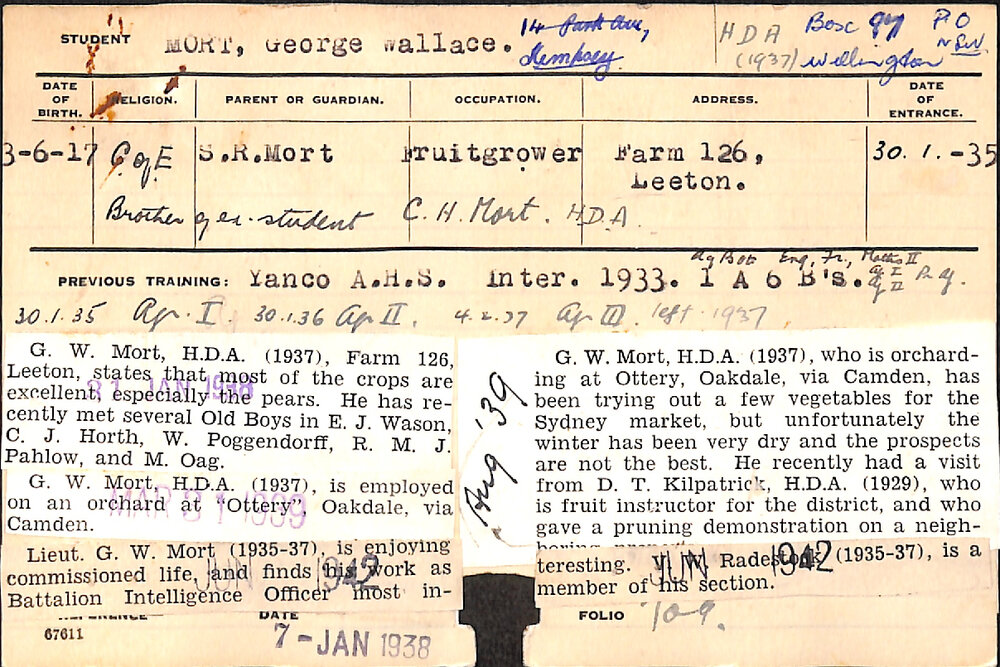 STUDENT MORT, George Wallace. 14 Park Ave, Kempsey. HDA (1937) Bosc Qy PO Wellington NSW
DATE OF BIRTH. RELIGION. PARENT OR GUARDIAN. OCCUPATION. ADDRESS. DATE OF ENTRANCE.
3-6-17 C of E S.R.Mort Fruitgrower Farm 126, Leeton. 30. 1. -35
Brother of ex-student C. H. Mort. H.D.A
Ag Bot Eng, Fr., Maths II
PREVIOUS TRAINING: Yanco A.H.S. Inter. 1933. 1 A 6 B's. Ag I Ag II
30.1.35 Apr. I 30.1.36 Ap II. 4.2.37 Ap III left 1937
G. W. Mort, H.D.A. (1937), Farm 126,
Leeton, states that most of the crops are
excellent, especially the pears. He has re-
cently met several Old Boys in E. J. Wason,
C. J. Horth, W. Poggendorff, R. M. J.
Pahlow, and M. Oag.
31 JAN 1938
G. W. Mort, H.D.A. (1937), is employed
on an orchard at "Ottery," Oakdale, via
Camden.
MAR 31 1939
Lieut. G. W. Mort (1935-37), is enjoying
commissioned life, and finds his work as
Battalion Intelligence Officer most in-
JUN 1942
Aug '39
G. W. Mort, H.D.A. (1937), who is orchard-
ing at Ottery, Oakdale, via Camden, has
been trying out a few vegetables for the
Sydney market, but unfortunately the
winter has been very dry and the prospects
are not the best. He recently had a visit
from D. T. Kilpatrick, H.D.A. (1929), who
is fruit instructor for the district, and who
gave a pruning demonstration on a neigh-
teresting. V. W. Radestock (1935-37), is a
member of his section.
JUN 1942
REFERENCE DATE FOLIO 109.
67611
7-JAN 1938